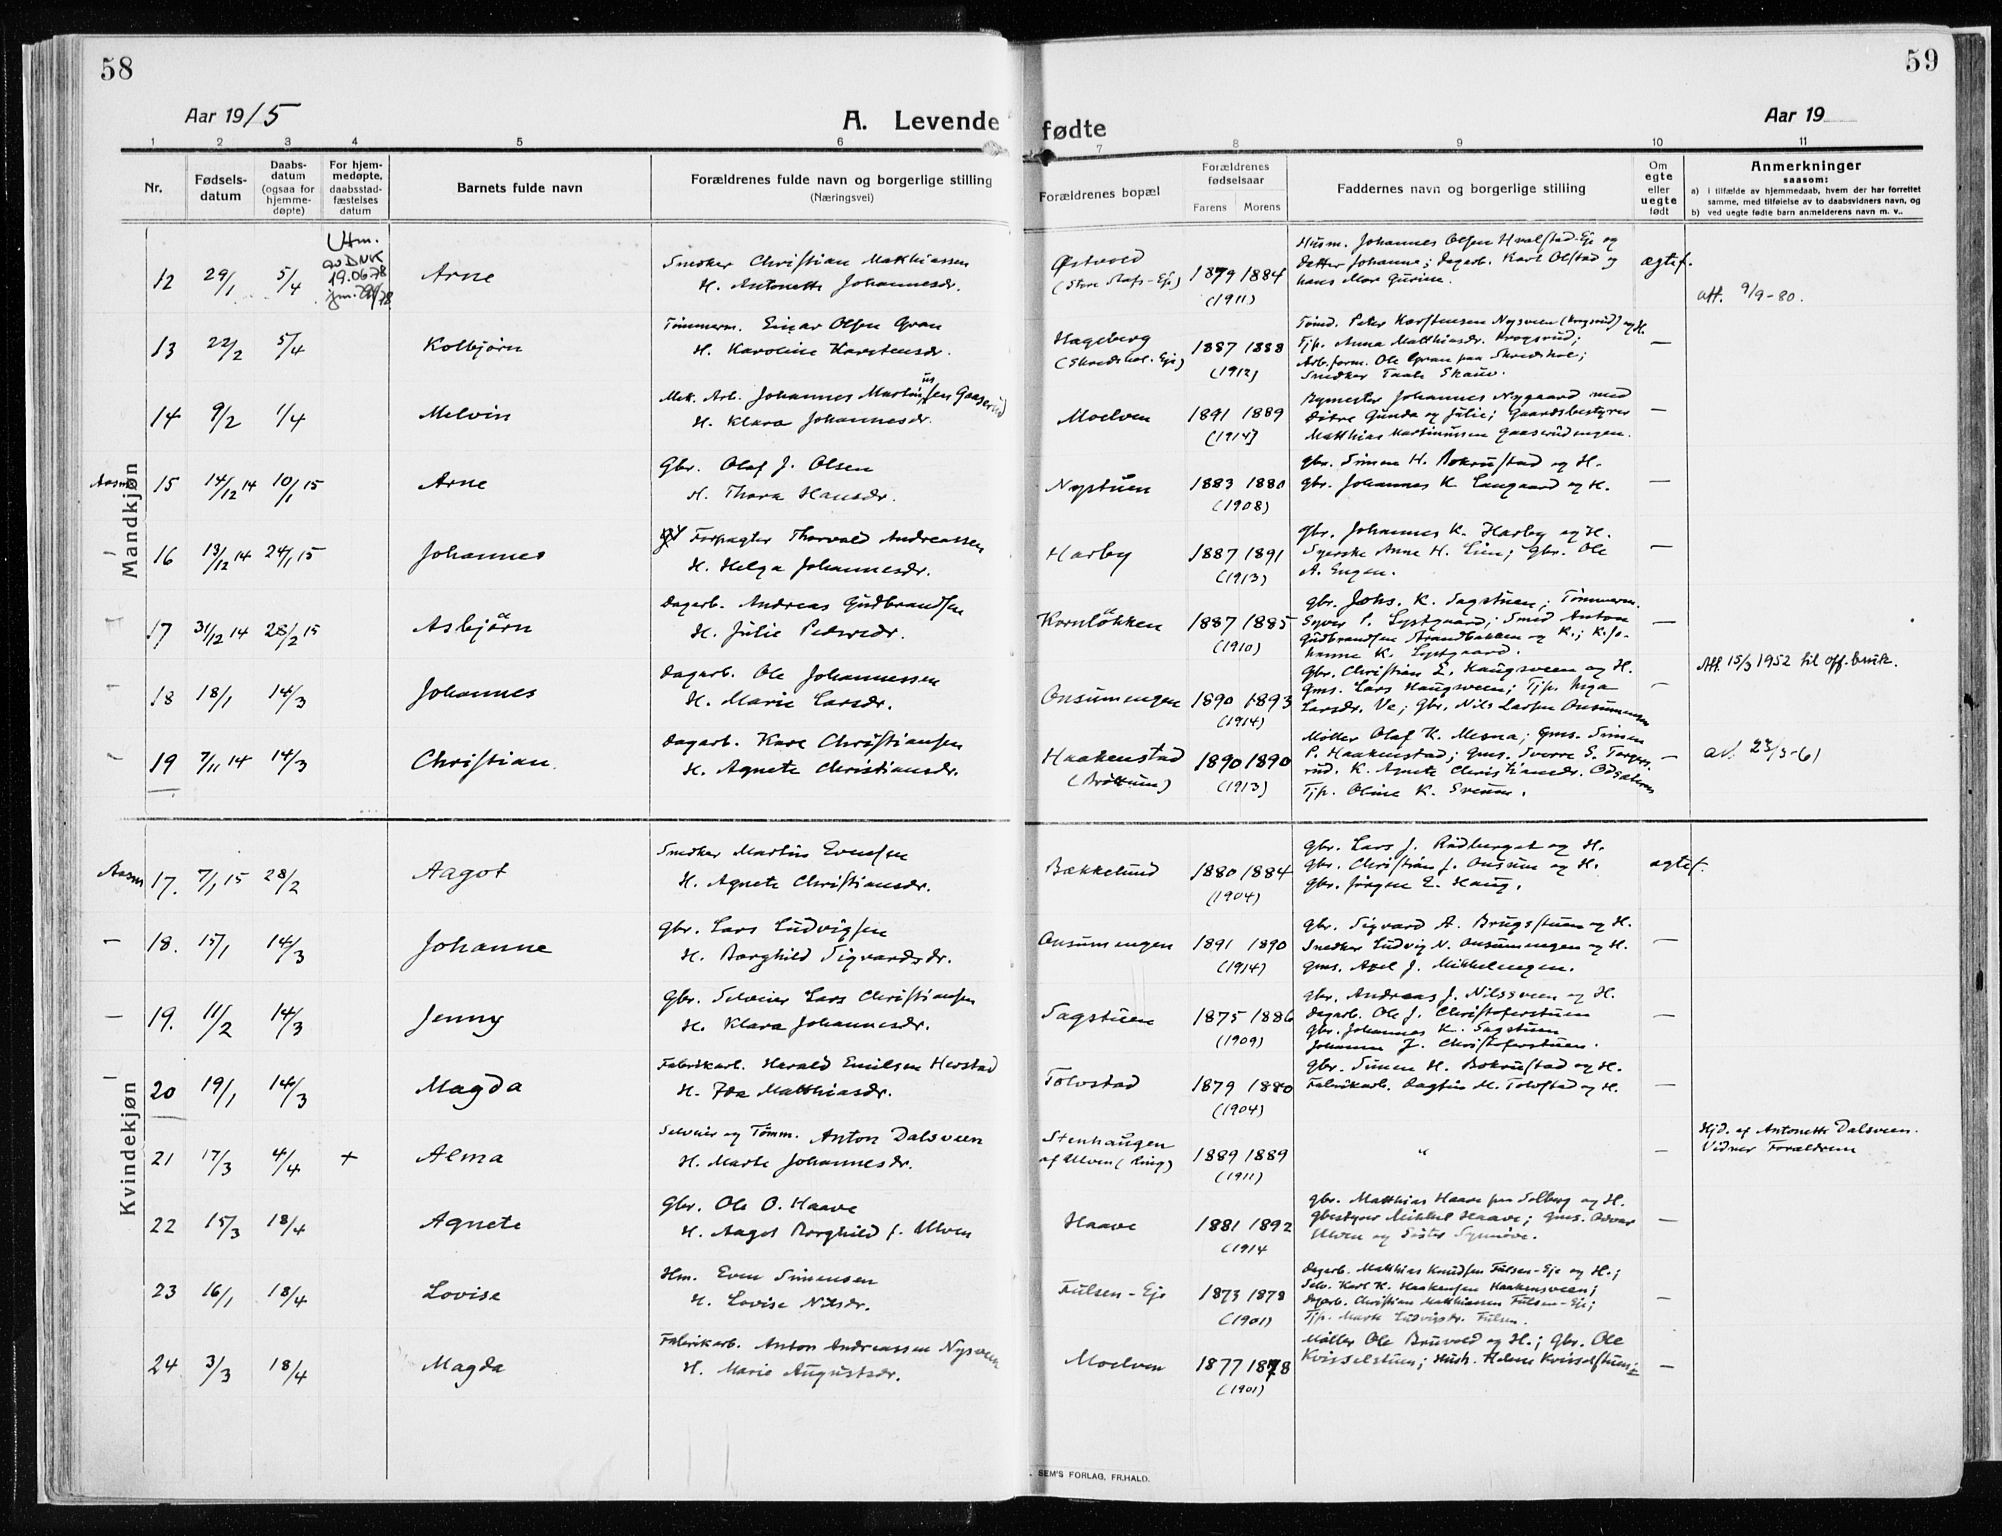 58
59
Aar 1915
A. Levende fødte
Aar 19
1 2 3 4 5 6 7 8 9 10 11
Nr.
Fødsels-
datum
Daabs-
datum
(ogsaa for
hjemme-
døpte)
For hjem-
medøpte,
daabsstad-
fæstelses
datum
Barnets fulde navn
Forældrenes fulde navn og borgerlige stilling
(Næringsvei)
Forældrenes bopæl
Forældrenes
fødselsaar
Farens Morens
Faddernes navn og borgerlige stilling
Om
egte
eller
uegte
født
Anmerkninger
saasom:
a) i tilfælde av hjemmedaab, hvem der har forrettet
samme, med tilføielse av to daabsvidners navn, og
b) ved uegte fødte barn anmelderens navn m. v..
Mandkjøn
Utm.
av DNK
19.06.78
12 29/1 5/4 Arne
Snedker Christian Matthiassen
H. Antonette Johannesdr.
Østvold
1879 1884
(1911)
Husm. Johannes Olsen Hvalstad-Eje og
datter Johanne; Dagarb. Karl Olstad og
hans Mor Gurine.
ægtef.
att. 9/9-80.
13 22/2 5/4 Kolbjørn
Tømmerm. Einar Olsen Gran
H. Karoline Karstensdr.
Hageberg
(Skredshol-Eje)
1887 1888
(1912)
Tømd. Peter Karstensen Nysveen (Krogsrud) og H.
Tjp. Anna Matthiasdr. Krogsrud;
Arb.form. Ole Gran paa Skredshol;
Snedker Skaug.
—
14 9/2 1/4 Melvin
Mek. Arb. Johannes Martinussen Gaaserud
H. Klara Johannesdr.
Moelven
1891 1889
(1914)
Bymester Johannes Nygaard med
Døtre Gunda og Julie; Gaardsbestyrer
Matthias Martinussen Gaaserudengen.
—
15 14/12 14 10/1 15 Arne
Gbr. Olaf J. Olsen
H. Thora Hansdr.
Nystuen
1883 1880
(1908)
gbr. Simen H. Bokrustad og H.
gbr. Johannes K. Langaard og H.
—
16 13/12 14 24/1 15 Johannes
Forpagter Thorvald Andreassen
H. Helga Johannesdr.
Harby
1887 1891
(1913)
gbr. Johannes K. Harby og H.
Syerske Anne H. Lien; gbr. Ole
A. Engen.
—
17 31/12 14 28/2 15 Asbjørn
Dagarb. Andreas Gudbrandsen
H. Julie Pedersdr.
Kornløkken
1887 1885
(1910)
gbr. Johs. K. Sagstuen; Tømmerm.
Syver P. Lystgaard; Smed Anton
Gudbrandsen Strandbakken og K.; K. Jo-
hanne K. Lystgaard.
—
18 18/1 14/3 Johannes
Dagarb. Ole Johannessen
H. Marie Larsdr.
Onsumengen
1890 1893
(1914)
Gbr. Christian L. Haugsveen og H.
Gms. Lars Haugsveen; Tjp. Inga
Larsdr. Ve; gbr. Nils Larsen Onsumengen
—
Att. 15/3 1952 til off. bruk.
19 7/11 14 14/3 Christian
Dagarb. Karl Christiansen
H. Agnete Christiansdr.
Haakenstad
(Brøttum)
1890 1890
(1913)
Møller Olaf K. Mesna; Gms. Simen
P. Haakenstad; gms. Sverre S. Torges-
rud. K. Agnete Christiansdr.
Tjp. Oline K. Sveum.
—
av. 23/3-61
Kvindekjøn
17. 7/1 15 28/2 Aagot
Snedker Martin Evensen
H. Agnete Christiansdr.
Bækkelund
1880 1884
(1904)
gbr. Lars J. Rudberget og H.
gbr. Christian J. Onsum og H.
gbr. Jørgen E. Haug.
egtef.
— 18. 15/1 14/3 Johanne
gbr. Lars Ludvigsen
H. Borghild Sigvardsdr.
Onsumengen
1891 1890
(1914)
gbr. Sigvard A. Brugsstuen og H.
Snedker Ludvig N. Onsumengen og H.
gms. Axel J. Mikkelengen.
—
— 19. 11/2 14/3 Jenny
Gbr. Selveier Lars Christiansen
H. Klara Johannesdr.
Sagstuen
1875 1886
(1909)
gbr. Andreas J. Nilssveen og H.
Dagarb. Ole J. Christoferstuen
gbr. Johannes K. Sagstuen
Johanne J. Christoferstuen.
—
20 19/1 14/3 Magda
Fabrikarb. Harald Emilsen Herstad
H. Ida Matthiasdr.
Tolvstad
1879 1880
(1904)
gbr. Simen H. Bokrustad og H.
Fabrikarb. Dagfin M. Tolvstad og H.
—
21 17/3 4/4 + Alma
Selveier og Tømm. Anton Dalsveen
H. Marte Johannesdr.
Stenhaugen
af Ulven (Ring)
1889 1889
(1911)
"
—
Hjd. af Antonette Dalsveen.
Vidner Forældrene
22 15/3 18/4 Agnete
Gbr. Ole O. Haave
H. Aagot Borghild f. Ulven
Haave
1881 1892
(1914
gbr. Matthias Haave paa Solberg og H.
Gbestyrer Mikkel Haave; gms. Odvar
Ulven og Søster Synnøve.
—
23 16/1 18/4 Lovise
Hm. Even Simensen
H. Lovise Nilsdr.
Fulsen-Eje
1873 1878
(1901)
Dagarb. Matthias Knudsen Fulsen-Eje og H.;
Selv. Karl H. Haakensen Haakensveen;
Dagarb. Christian Matthiassen Fulsen-Eje;
Tjp. Marte Ludvigsdr. Fulsen.
—
24 3/3 18/4 Magda
Fabrikarb. Anton Andreassen Nysveen
H. Marie Augustsdr.
Moelven
1877 1878
(1901)
Møller Ole Bruvold og H.; gbr. Ole
Kvisselstuen; Hush. Helene Kvisselstuen
—
SEM'S FORLAG, FR.HALD.